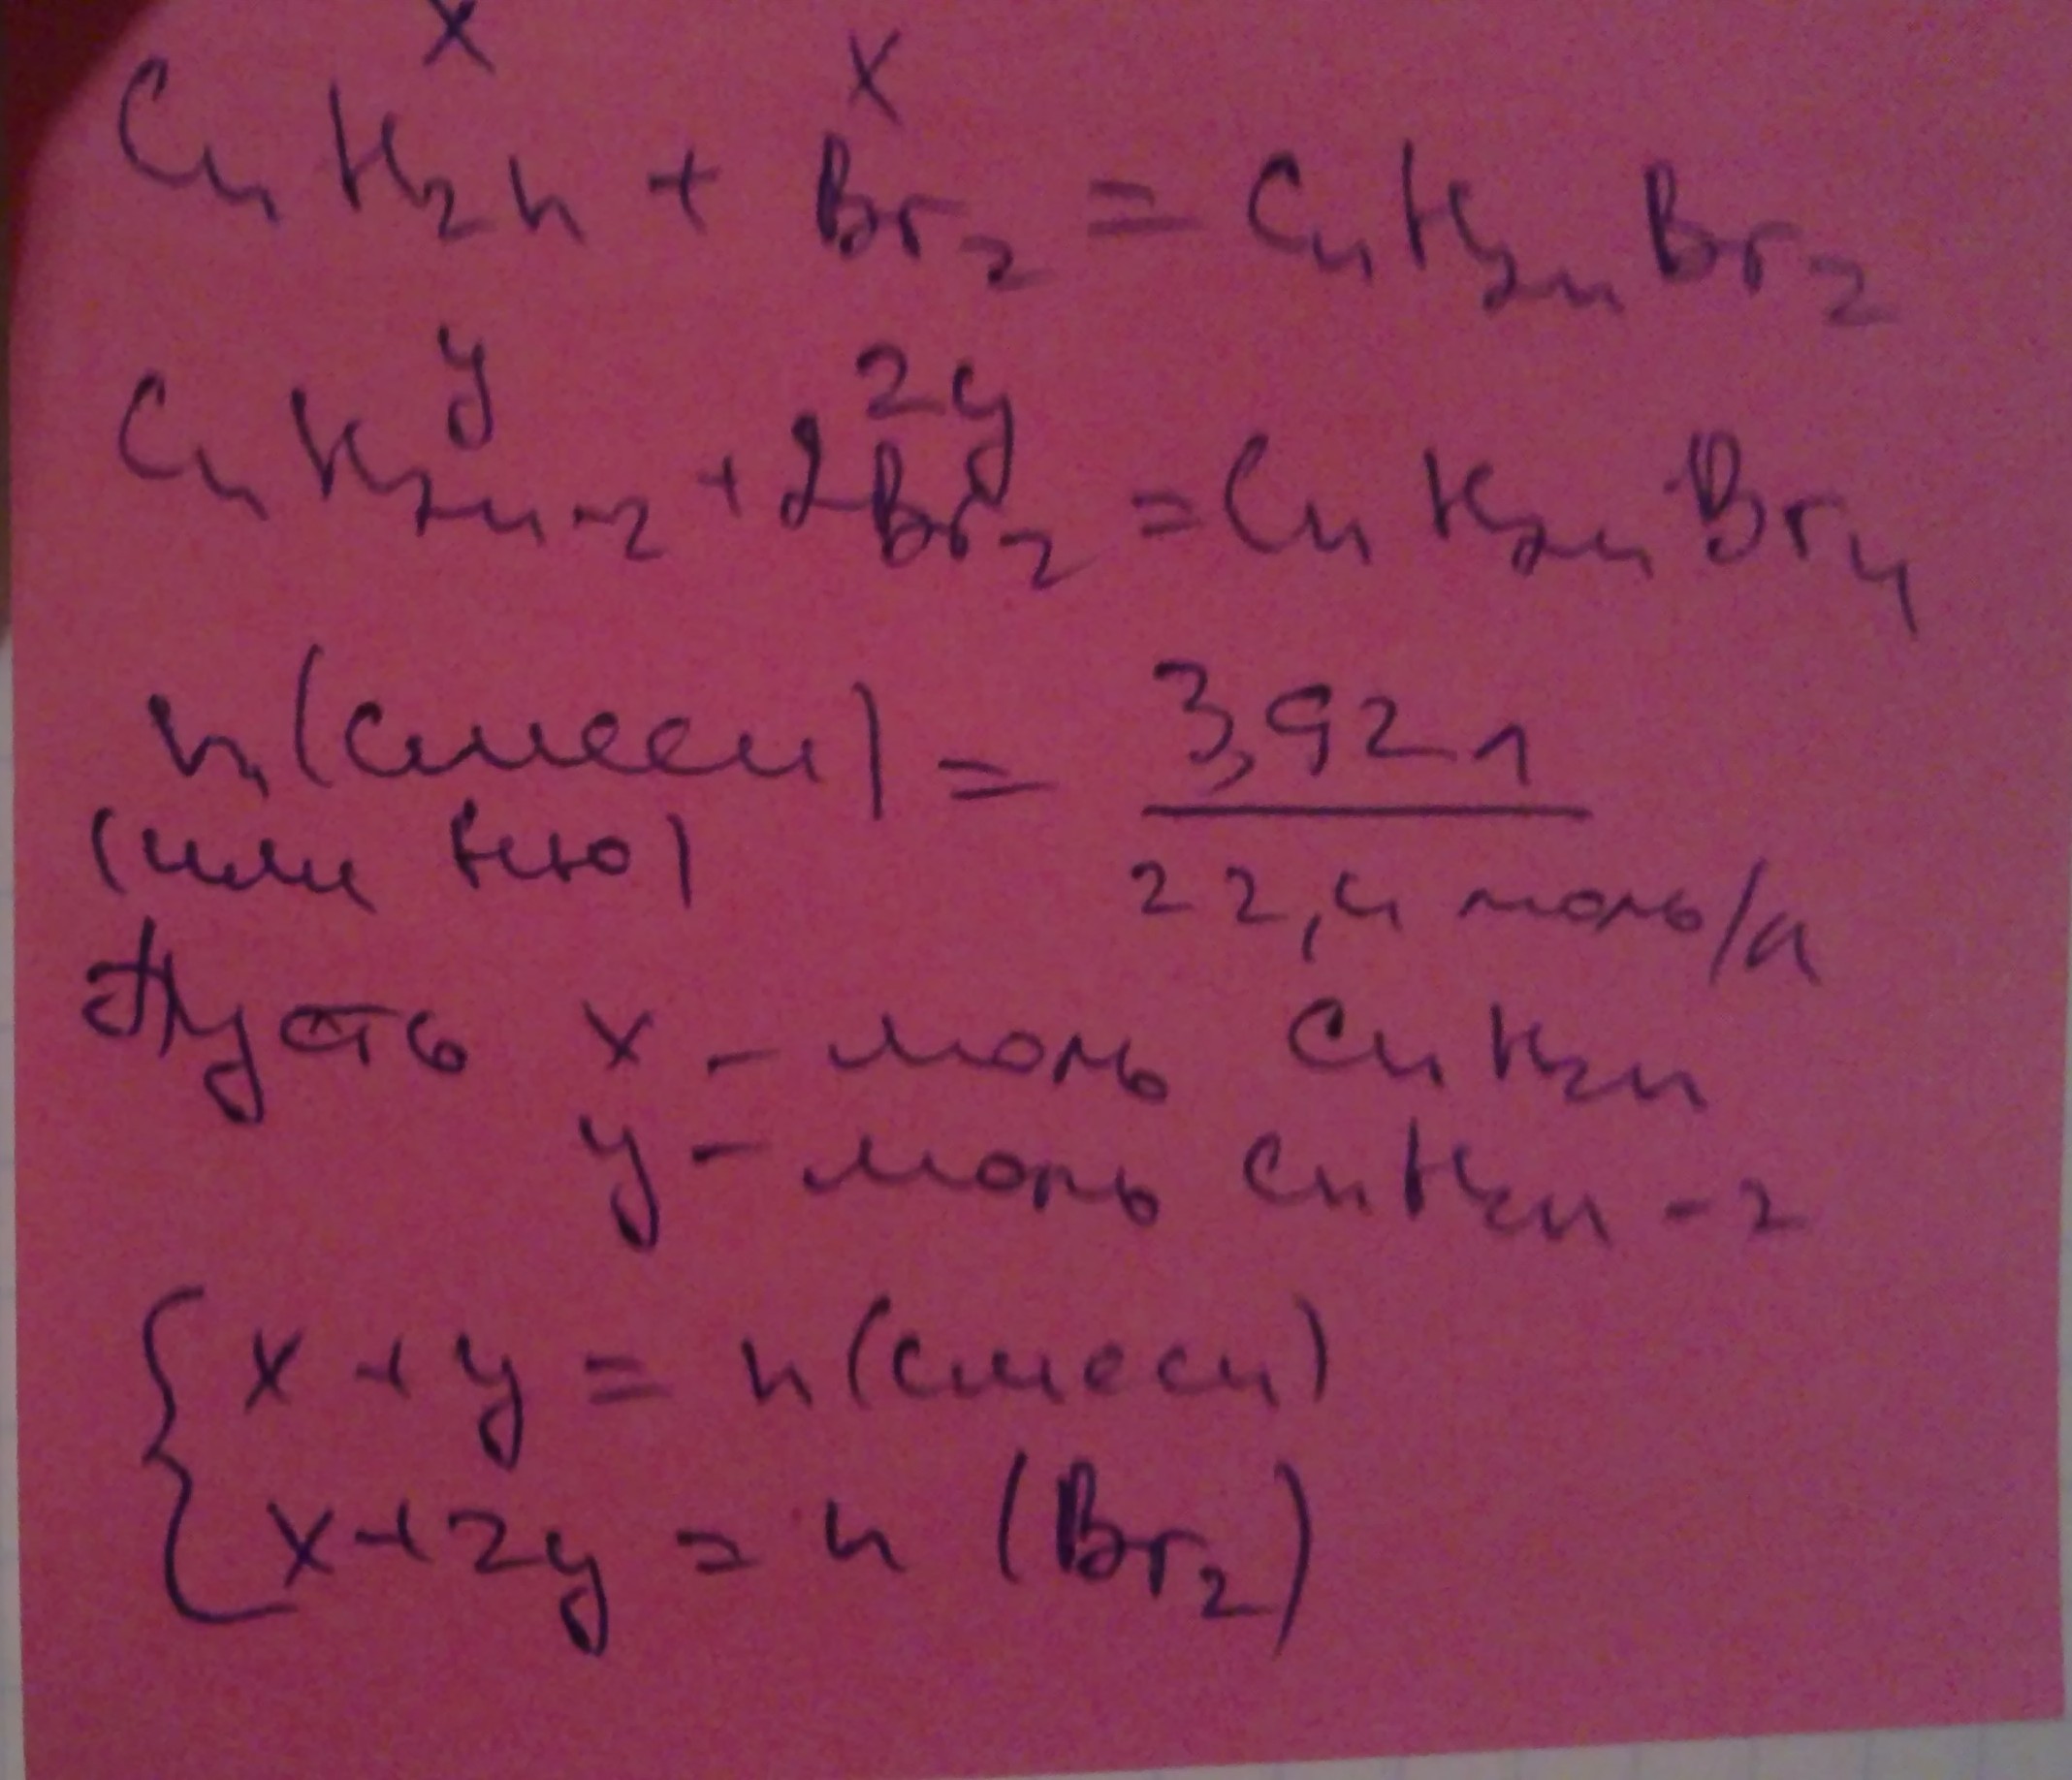 x x
CnH2n + Br2 = CnH2nBr2
y 2y
CnH2n-2 + 2Br2 = CnH2nBr4
n(смеси) = 3,92л
(или ню) 22,4 моль/л
Пусть x - моль CnH2n
y - моль CnH2n-2
x + y = n(смеси)
x + 2y = n (Br2)